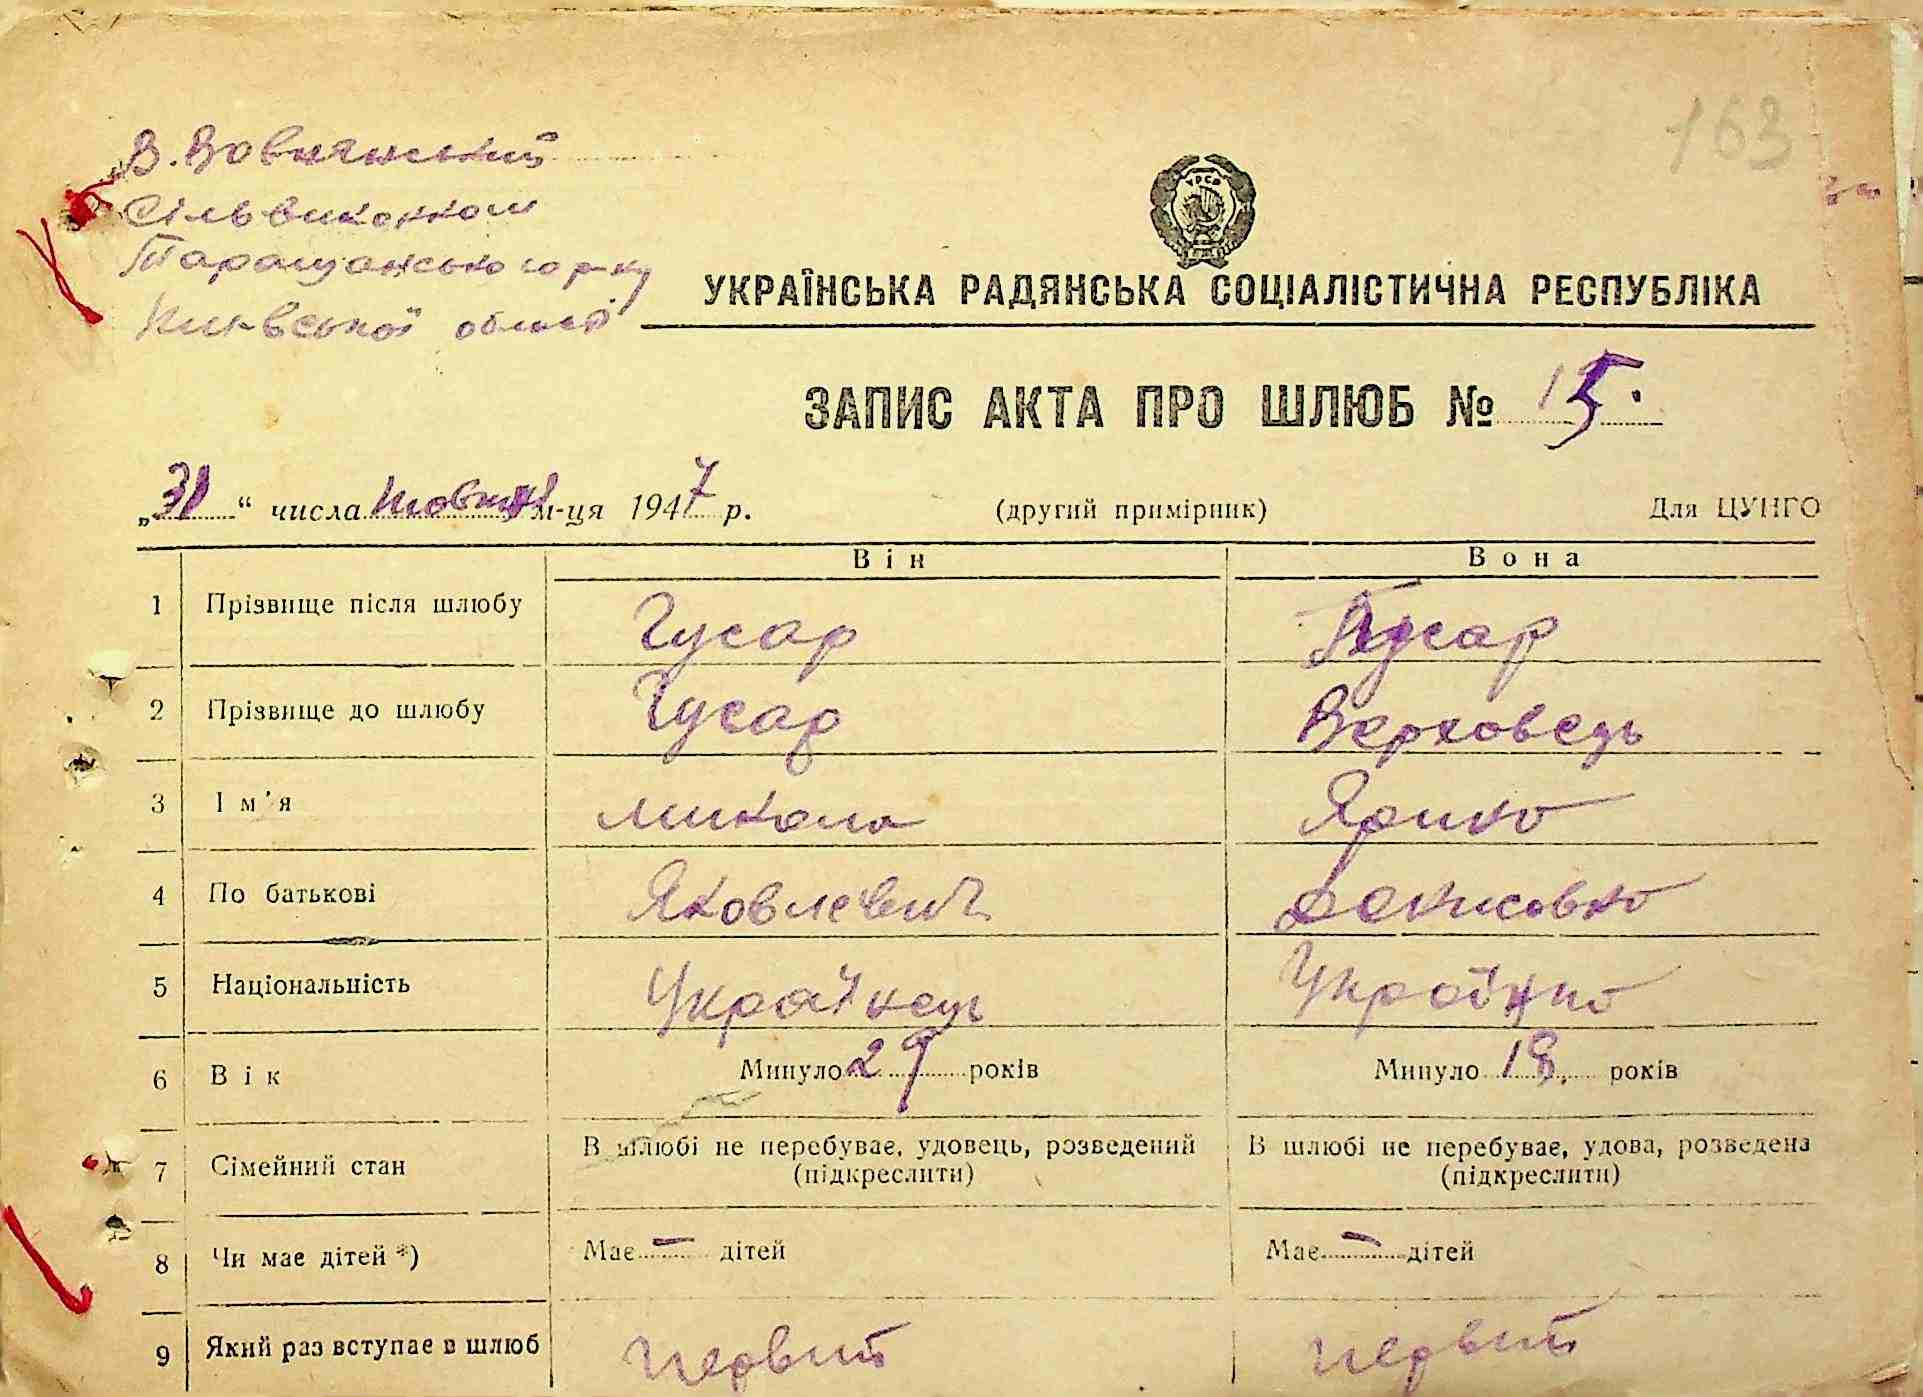 163
В. Вовнянський
Сільвиконком
Таращанського р-ну
Київської області
УРСР
УКРАЇНСЬКА РАДЯНСЬКА СОЦІАЛІСТИЧНА РЕСПУБЛІКА
ЗАПИС АКТА ПРО ШЛЮБ № 15.
„31“ числа Жовтня м-ця 1947 р. (другий примірник) Для ЦУНГО
Він Вона
1 Прізвище після шлюбу Гусар Гусар
2 Прізвище до шлюбу Гусар Верховець
3 Ім'я Микола Ярина
4 По батькові Яковлевич Денисовна
5 Національність Українець Українка
6 Вік Минуло 29 років Минуло 18 років
7 Сімейний стан В шлюбі не перебуває, удовець, розведений (підкреслити) В шлюбі не перебуває, удова, розведена (підкреслити)
8 Чи має дітей *) Має — дітей Має — дітей
9 Який раз вступає в шлюб первий первий